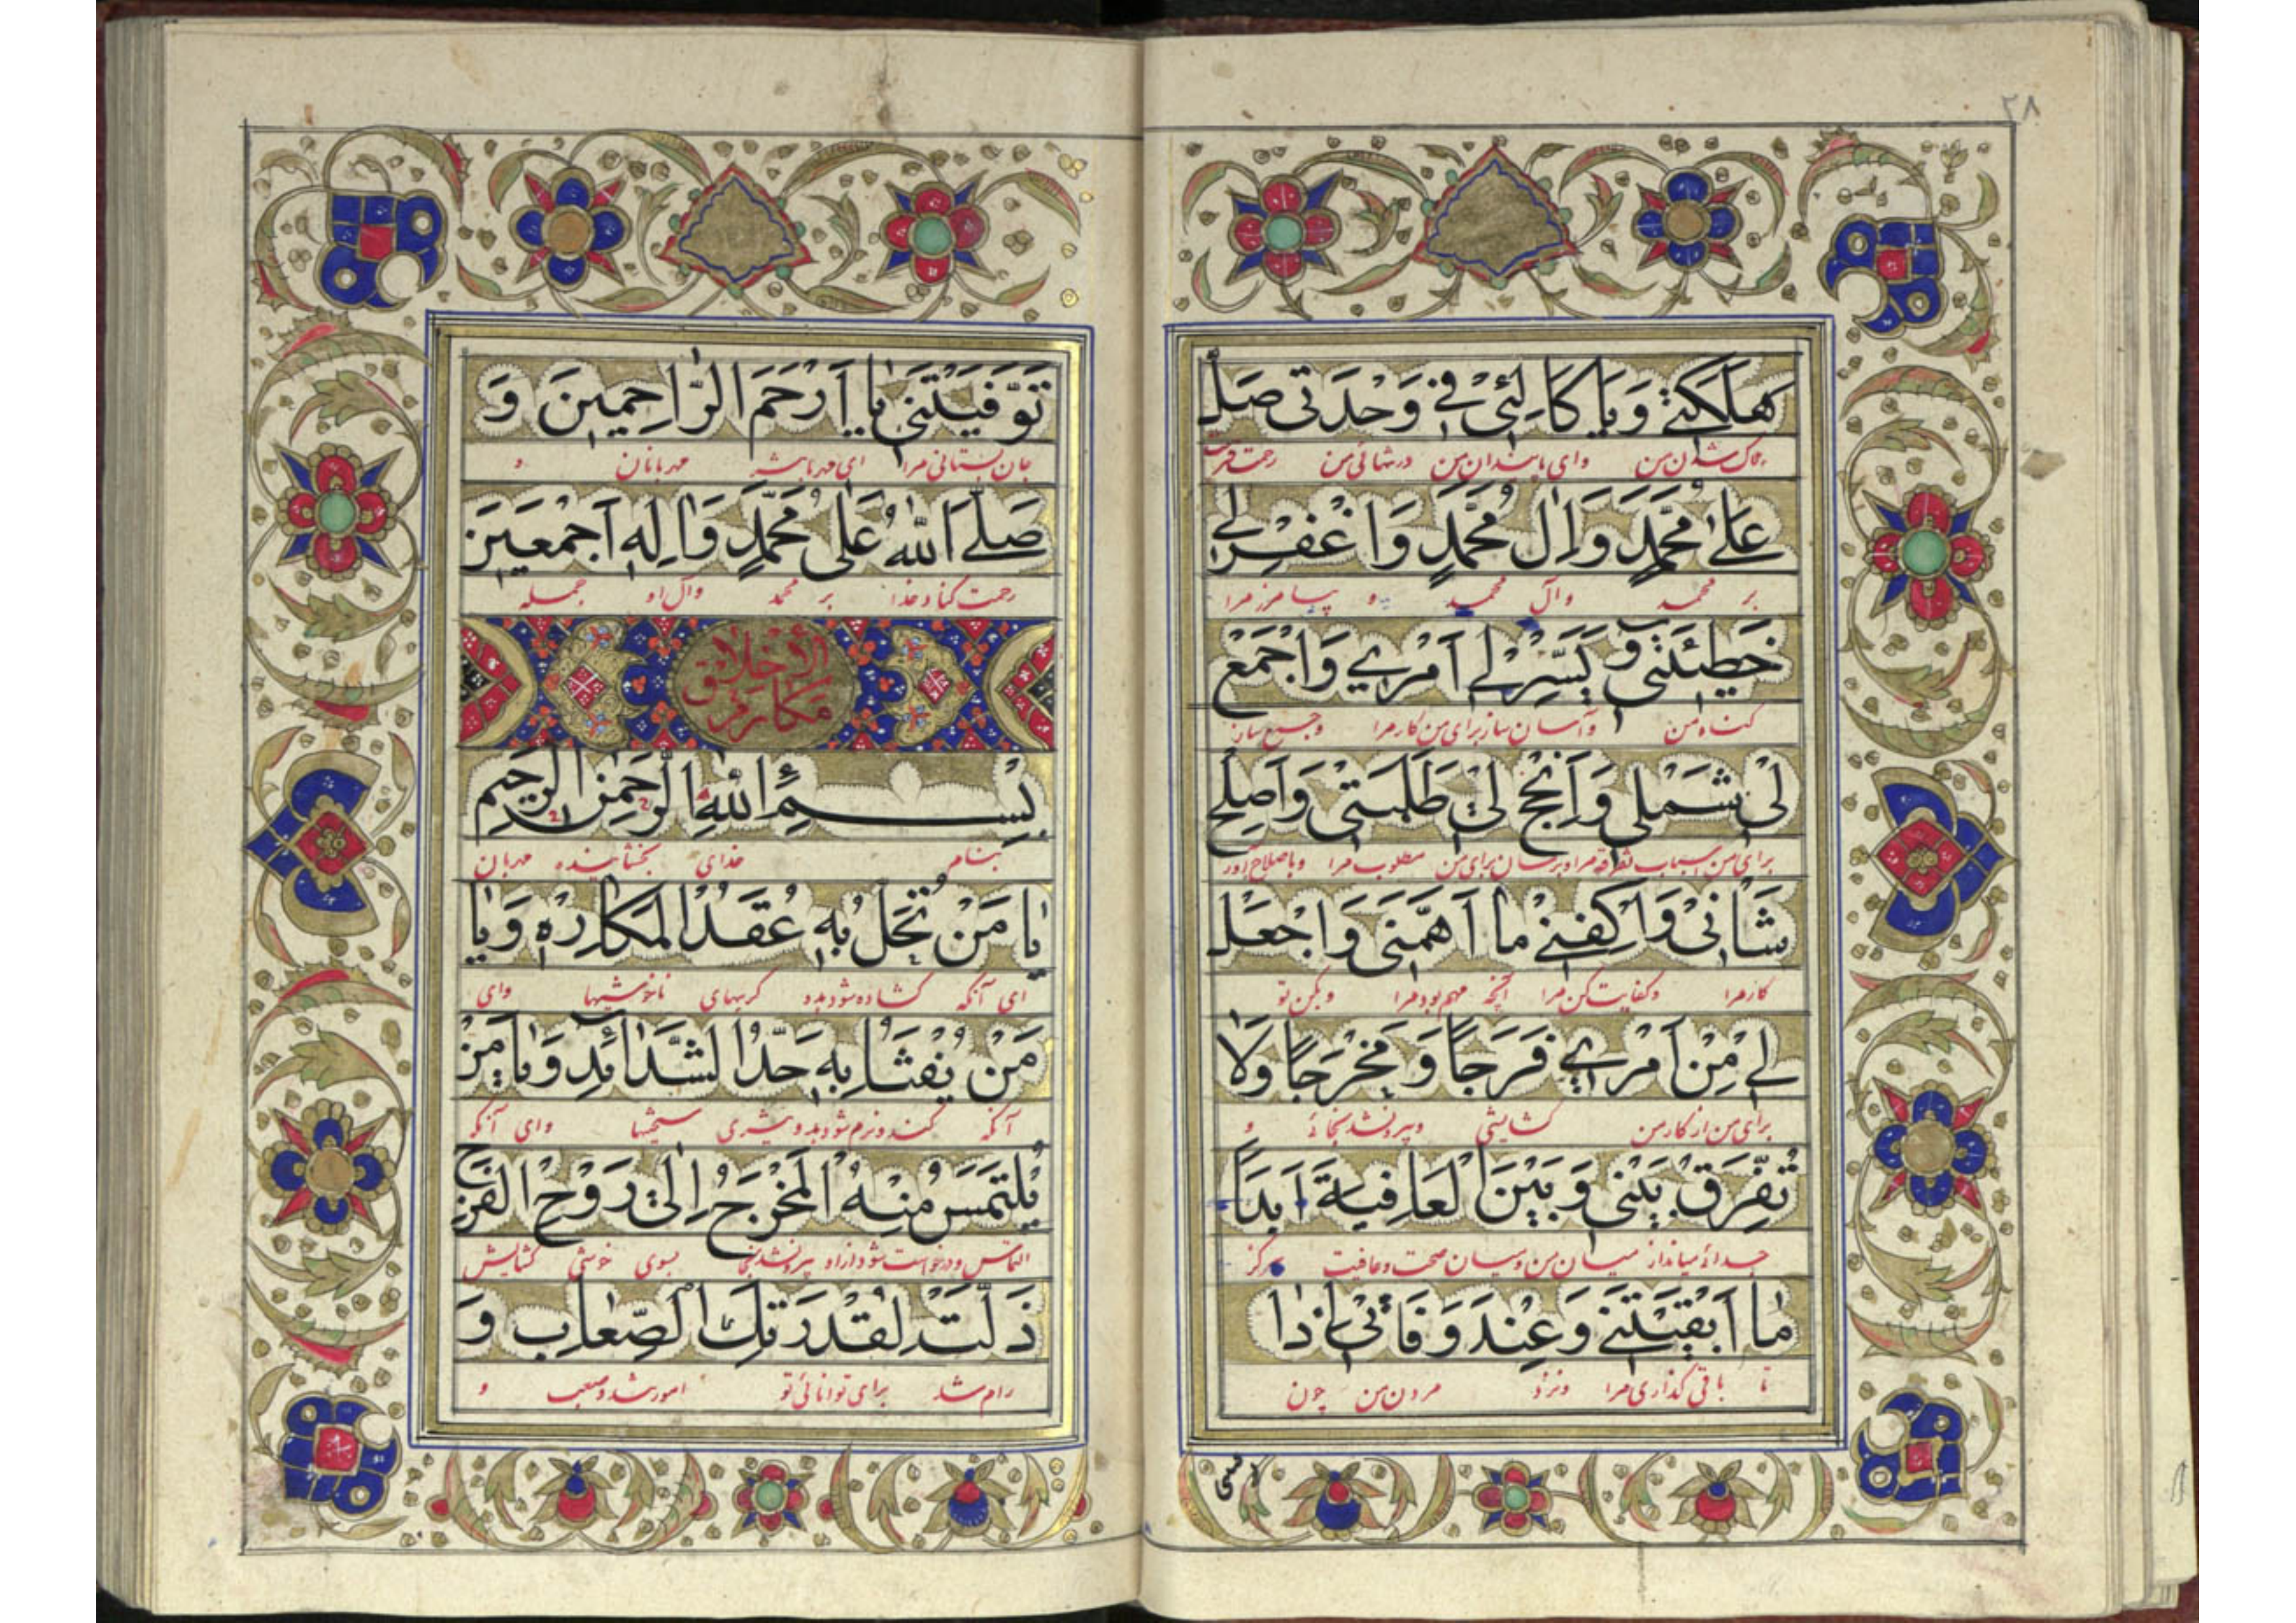 ٢٨
هَلَكَتي وَيا كالِئي في وَحْدَتي صَلِّ
هلاک شدن من وای پاسبان من در تنهائی من رحمت فرست
عَلیٰ مُحَمَّدٍ وَاٰلِ مُحَمَّدٍ وَاغْفِرْلي
بر محمد وآل محمد و بیامرز مرا
خَطيئَتي وَ يَسِّرْلي اَمْري وَاجْمَعْ
گناه من وآسان ساز برای من کار مرا وجمع ساز
لي شَمْلي وَ اَنْجِحْ لي طَلِبَتي وَاَصْلِحْ
برای من اسباب تفرقه مرا وبرسان برای من مطلوب مرا وباصلاح آور
شَاْني وَاكْفِني ما اَهَمَّني وَاجْعَلْ
کار مرا وکفایت کن مرا آنچه مهم بود مرا وبکن تو
لي مِنْ اَمْري فَرَجاً وَ مَخْرَجاً وَلا
برای من از کار من گشایشی و بیرونشدنجائی و
تُفَرِّقْ بَيْني وَ بَيْنَ الْعافِيَةِ اَبَداً
جدائی میانداز میان من ومیان صحت وعافیت هرگز
ما اَبْقَيْتَني وَ عِنْدَ وَفاتي اِذا
تا باقی گذاری مرا ونزد مردن من چون
تَوَفَّيْتَني يا اَرْحَمَ الرّاحِمينَ وَ
جان بستانی مرا ای مهربانتر مهربانان و
صَلَّی اللهُ عَلیٰ مُحَمَّدٍ وَاٰلِهِ اَجْمَعينَ
رحمت کناد خدا بر محمد وآل او جمله
مکارم الأخلاق
بِسْمِ اللهِ الرَّحْمٰنِ الرَّحيمِ
بنام خدای بخشاینده مهربان
يا مَنْ تُحَلُّ بِهِ عُقَدُ الْمَكارِهِ وَ يا
ای آنکه گشاده شود بدو گرههای ناخوشیها وای
مَنْ يُفْثَاُ بِهِ حَدُّ الشَّدائِدِ وَ يا مَنْ
آنکه کند ونرم شود بدو تیزی سختیها وای آنکه
يُلْتَمَسُ مِنْهُ الْمَخْرَجُ اِلیٰ رَوْحِ الْفَرَجِ
التماس ودرخواست شود ازاو بیرونشدنجا بسوی خوشی گشایش
ذَلَّتْ لِقُدْرَتِكَ الصِّعابُ وَ
رام شد برای توانائی تو امور شد وصعب و